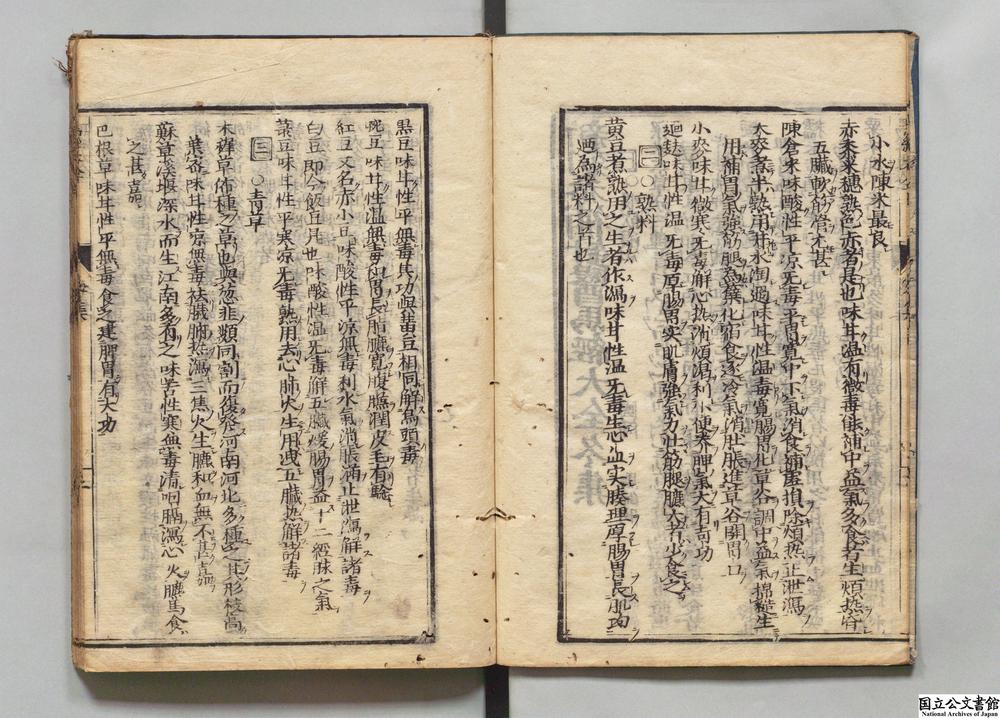 小水陳米最良
赤朱米穂熟色赤者是也味甘温有微毒脹滿中益氣多食若生煩熱守
五臟軟筋骨尤甚
陳倉米味酸性平凉无毒平胃寛中下氣消食補虛損除煩熱止泄瀉
大麥煮半熟用井水淘過味甘性温毒寛腸胃化草谷調中益氣
用補胃氣強筋腿為蘖化宿食逐冷氣消肚脹進草谷開胃口
小麥味甘微寒无毒解心熱消煩渇利小便養脾氣大有奇功
麯味甘性温无毒厚腸胃实肌膚強氣力壯筋腿臕大者少食之
為諸料之首也
二〇熟料
黄豆煮熟用之生者作瀉味甘性温无毒生心血实腠理厚腸胃長肌肉
黒豆味甘性平無毒其功與黄豆相同解烏頭毒
豌豆味甘性温無毒和胃長脂臕寛腹膓潤皮毛有驗
紅豆又名赤小豆味酸性平凉無毒利水氣消脹滿止泄瀉解諸毒
白豆即今飯豆是也味酸性温无毒解五臟煖腸胃益十二經脉之氣
菉豆味甘性平寒凉无毒熟用去心肺火生用洩五臟熱解諸毒
三〇青草
禾稗草佈種之草也與葱韭類同割而復發河南河北多種之其形枝高
葉密味甘性凉無毒祛臟腑熱瀉三焦火生臕和血無不甚嘉
蘇草溪堰深水而生江南多有之味苦性寒無毒清咽膈瀉心火臕馬食
之甚嘉
巴根草味甘性平無毒食之建脾胃有大功
国立公文書館
National Archives of Japan